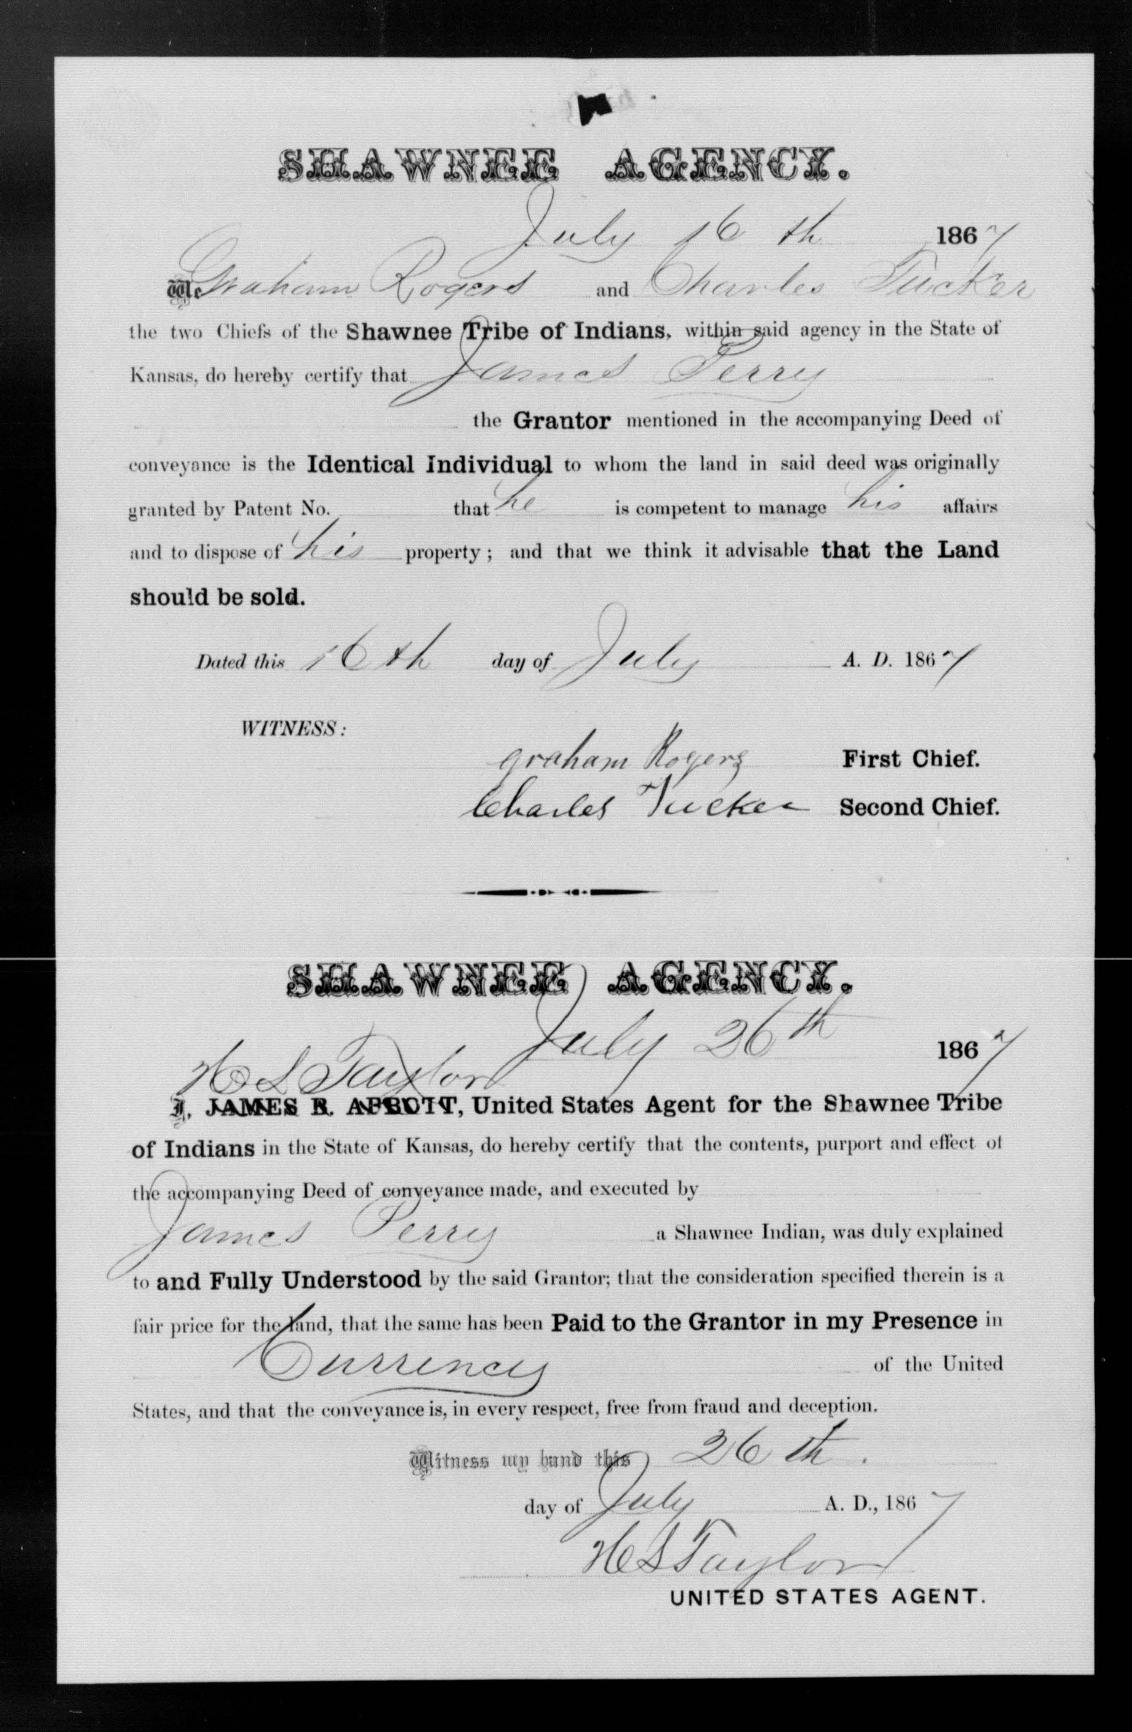 SHAWNEE AGENCY.
July 16th 1867
We Graham Rogers and Charles Tucker
the two Chiefs of the Shawnee Tribe of Indians, within said agency in the State of
Kansas, do hereby certify that James Perry
the Grantor mentioned in the accompanying Deed of
conveyance is the Identical Individual to whom the land in said deed was originally
granted by Patent No. that he is competent to manage his affairs
and to dispose of his property; and that we think it advisable that the Land
should be sold.
Dated this 16th day of July A. D. 1867
WITNESS:
Graham Rogers First Chief.
Charles Tucker Second Chief.
SHAWNEE AGENCY.
July 26th 1867
H L Taylor
I, JAMES B. ABBOTT, United States Agent for the Shawnee Tribe
of Indians in the State of Kansas, do hereby certify that the contents, purport and effect of
the accompanying Deed of conveyance made, and executed by
James Perry a Shawnee Indian, was duly explained
to and Fully Understood by the said Grantor; that the consideration specified therein is a
fair price for the land, that the same has been Paid to the Grantor in my Presence in
Currency of the United
States, and that the conveyance is, in every respect, free from fraud and deception.
Witness my hand this 26th.
day of July A. D., 1867
H L Taylor
UNITED STATES AGENT.